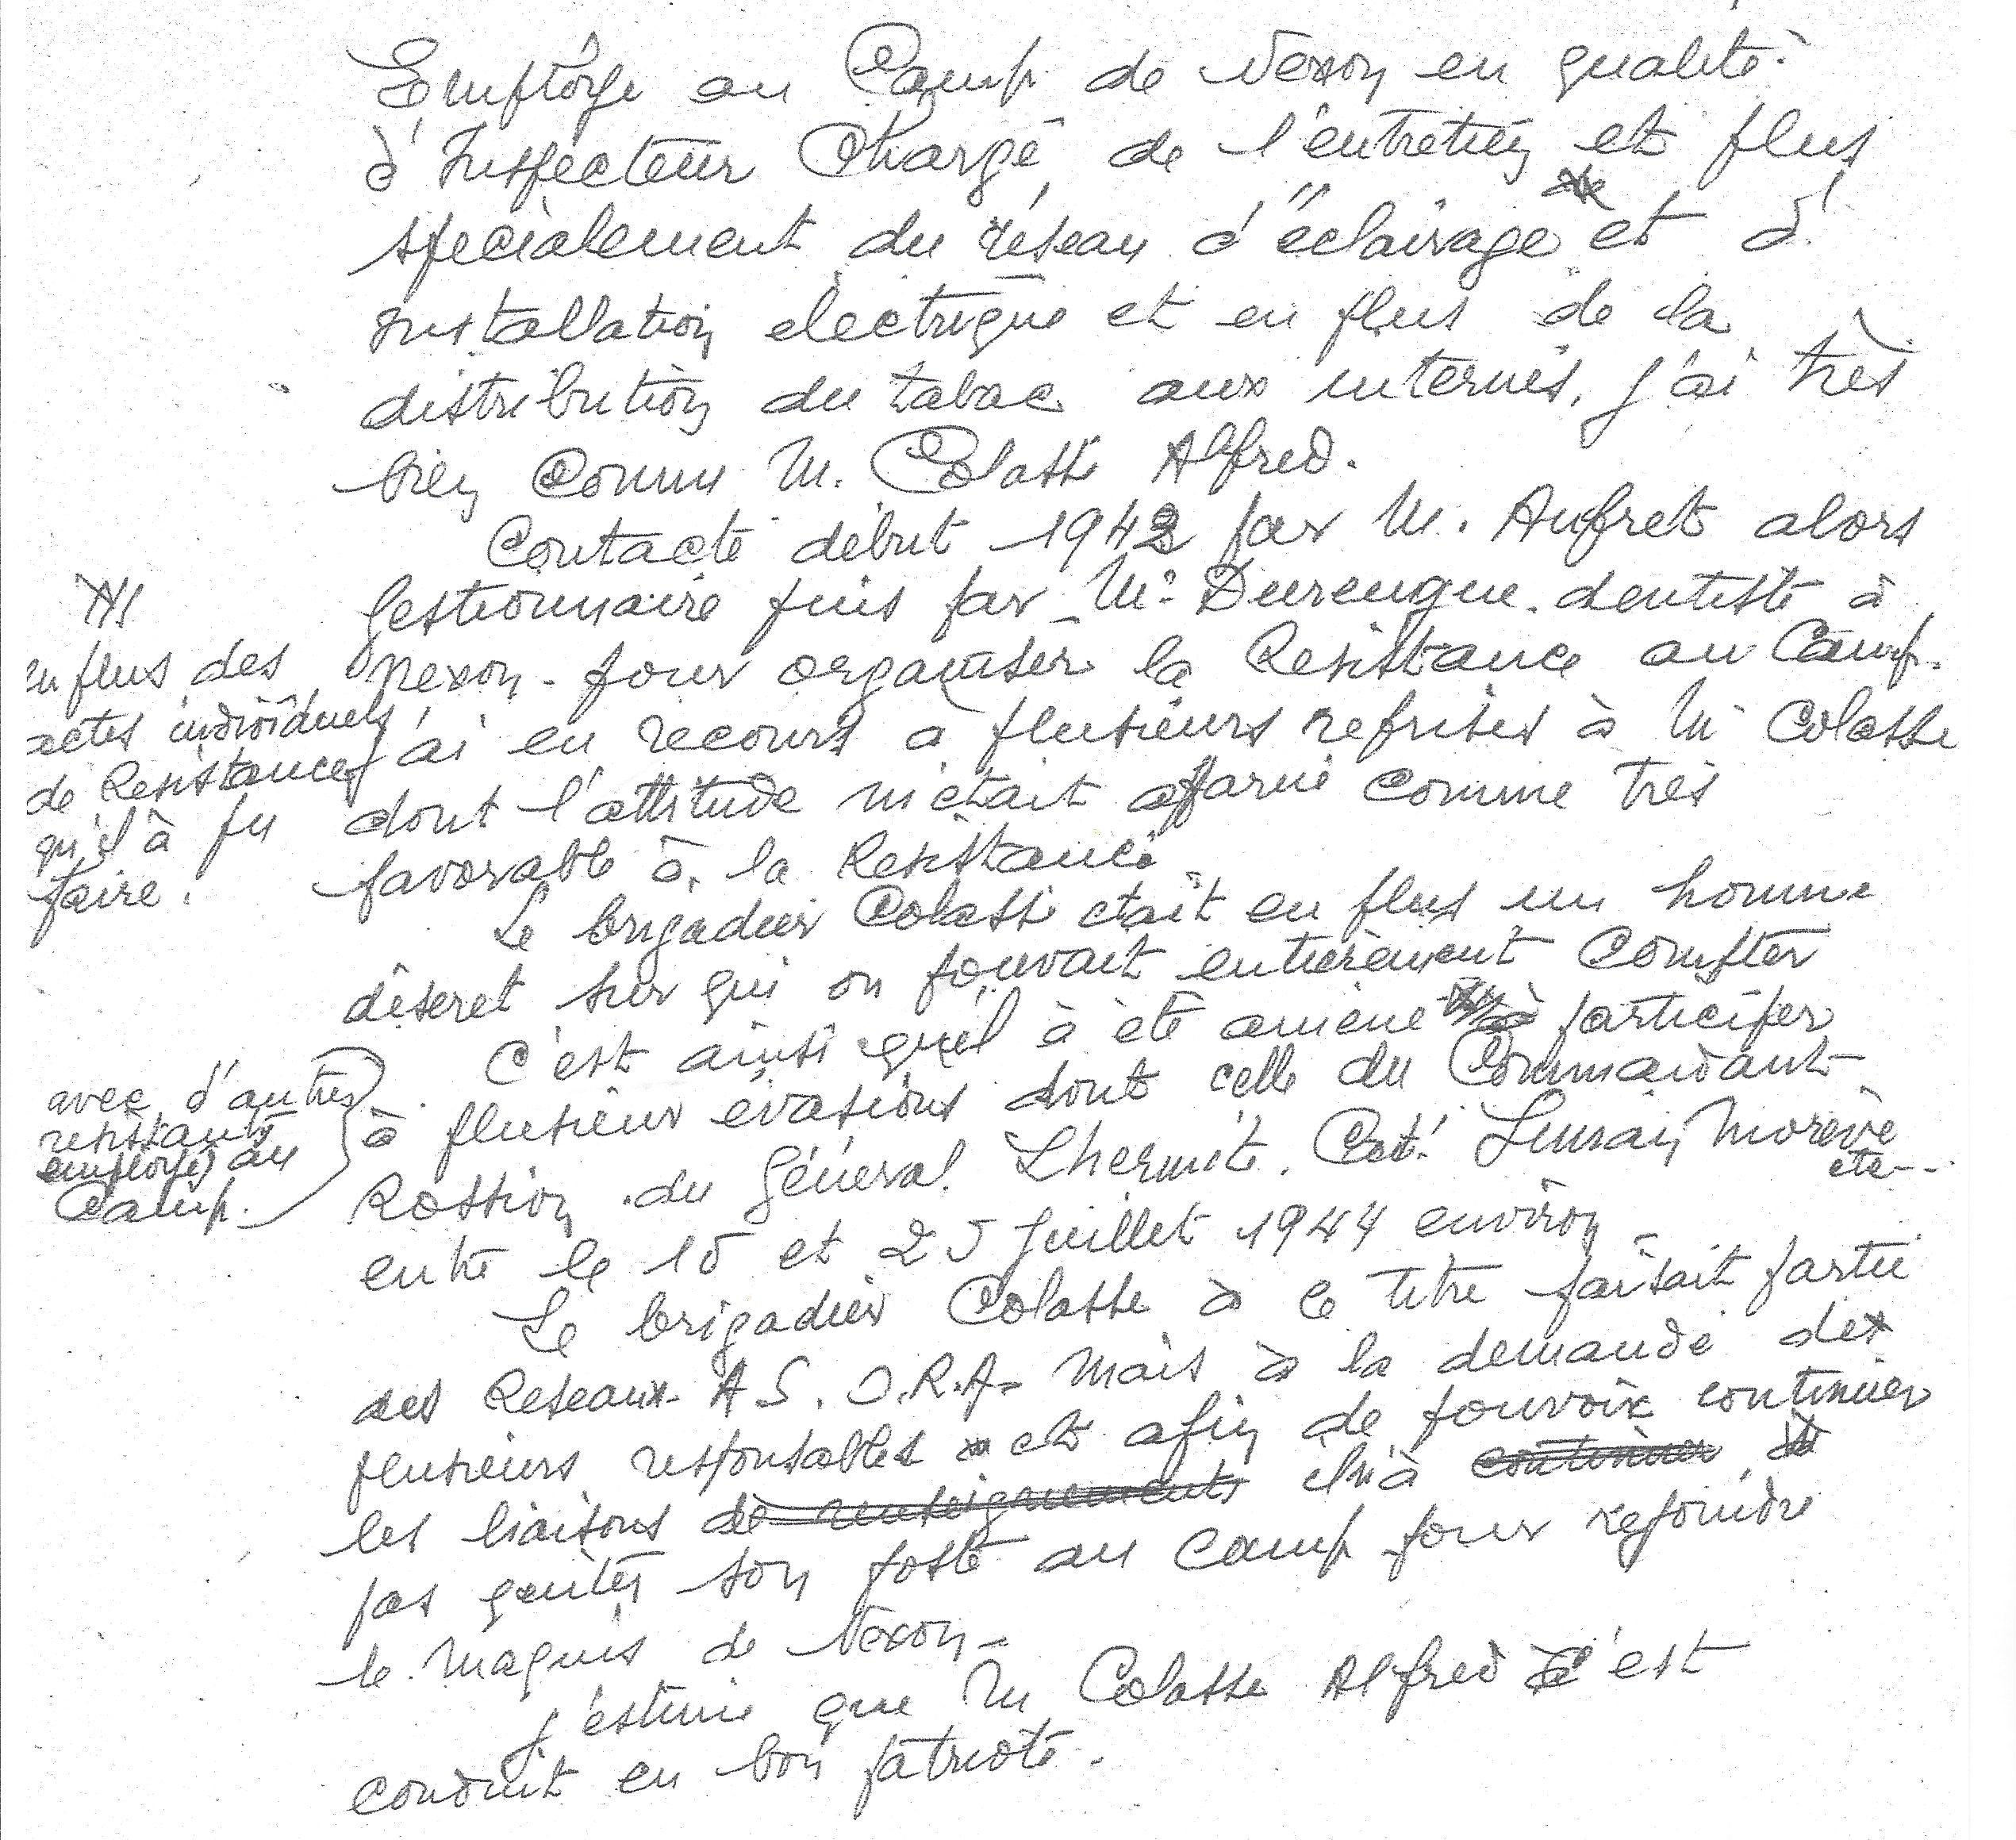 Employé au Camp de Nexon en qualité
d'Inspecteur Chargé de l'entretien et plus
spécialement du réseau d'éclairage et d'
installation electrique et en plus de la
distribution du tabac aux internés, j'ai très
bien Connu M. Colasse Alfred.
Contacté début 1942 par M. Aufret alors
Gestionnaire puis par M. Durengue dentiste à
Nexon - pour organiser la Résistance au Camp.
j'ai eu recours à plusieurs reprises à M Colasse
dont l'attitude m'était apparue comme très
favorable à la Résistance.
en plus des
actes individuels
de Resistance
qu'il à pu
faire.
Le brigadier Colasse était en plus un homme
discret sur qui on pouvait entièrement compter
C'est ainsi qu'il à été amené à participer
à plusieurs évasions dont celle du Commandant
Rossion du Général Lhermite. Cat. Limsay Morève
etc...
avec d'autres
résistants
employés au
Camp.
entre le 15 et 25 Juillet 1944 environ
Le brigadier Colasse à ce titre faisait partie
des Reseaux A.S. O.R.A- Mais à la demande de
plusieurs responsables et afin de pouvoir continuer
les liaisons de renseignements il n'à continuer
pas quitter son poste au Camp pour rejoindre
le Maquis de Nexon-
J'estime que M Colasse Alfred c'est
conduit en bon patriote.